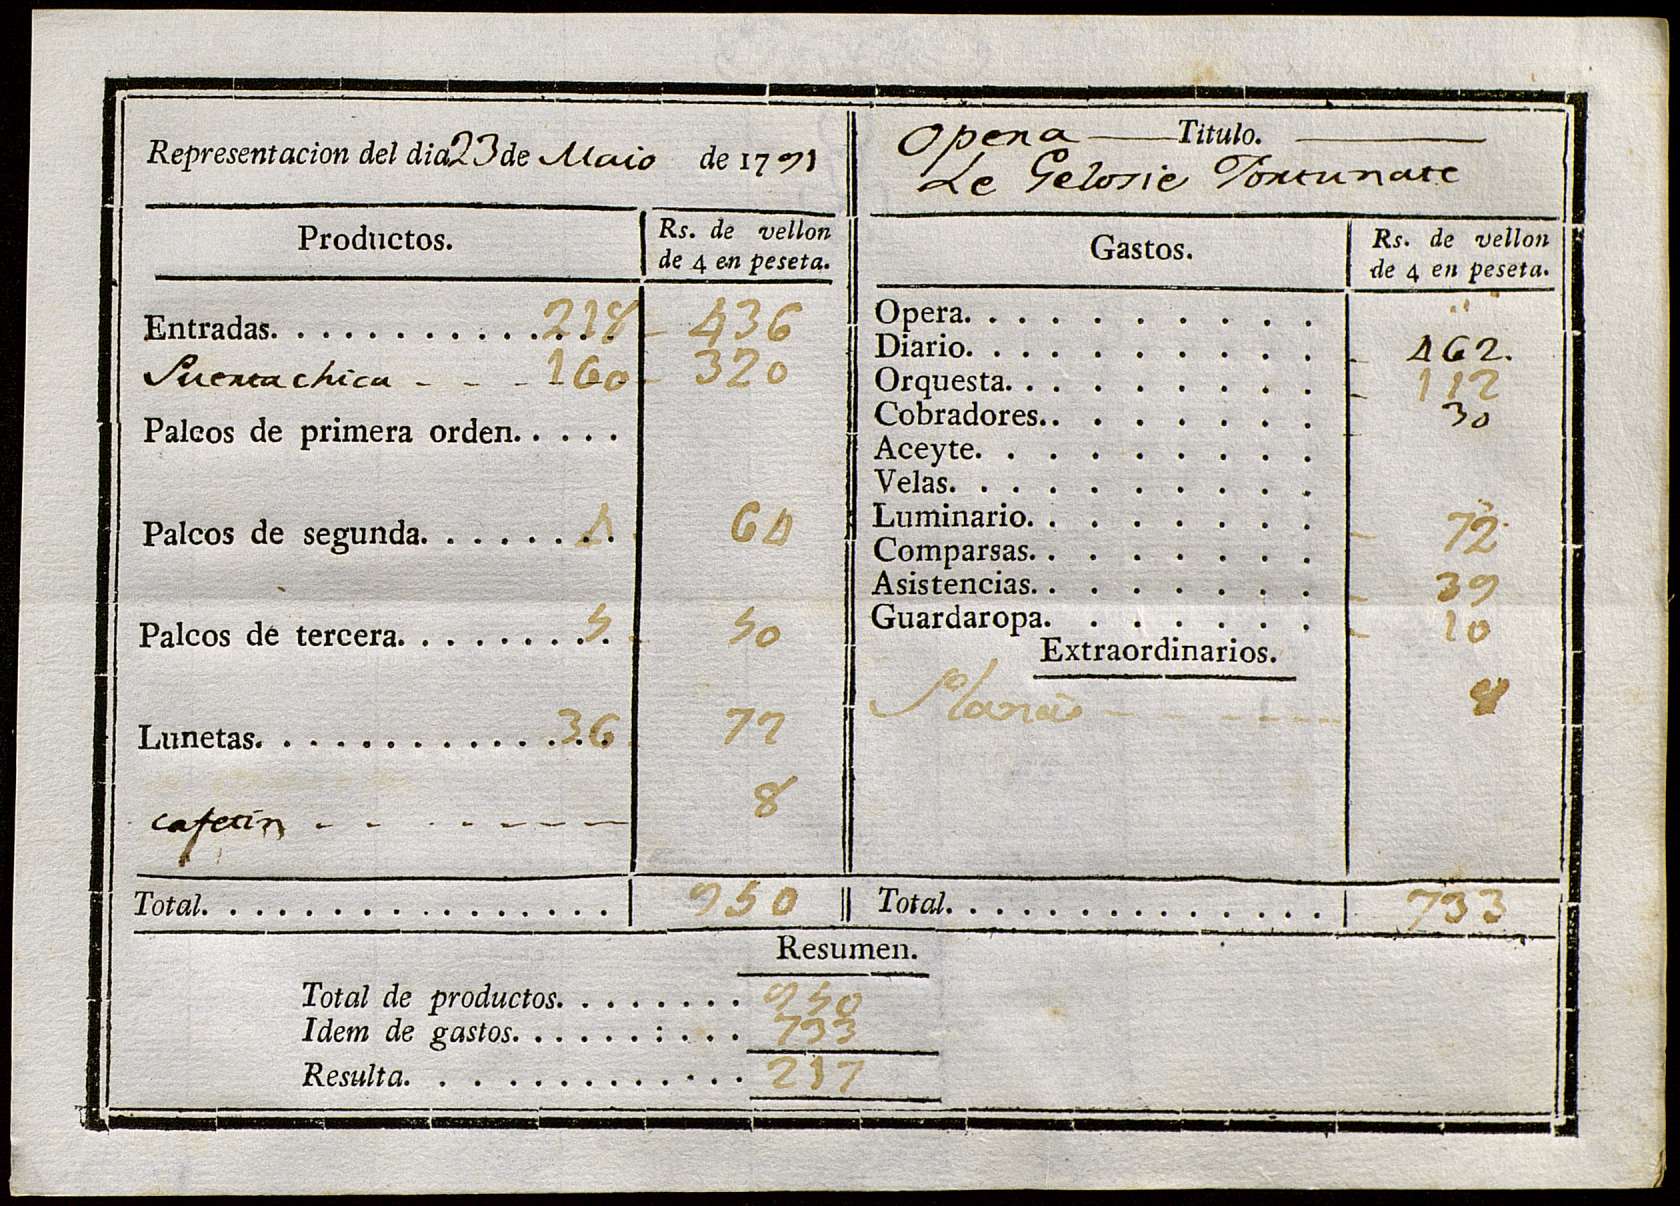 Representacion del dia 23 de Maio de 1791
Opera Titulo.
Le Gelosie Fortunate
Productos. Rs. de vellon de 4 en peseta.
Entradas. . . . . . . . . . . . . . 218 - 436
Puerta chica - - - - - 160 - 320
Palcos de primera orden. . . . .
Palcos de segunda. . . . . . . . 4 64
Palcos de tercera. . . . . . . . . 5 50
Lunetas. . . . . . . . . . . . . . 36 72
cafetin - - - - - - - 8
Total. . . . . . . . . . . . . . . . 950
Gastos. Rs. de vellon de 4 en peseta.
Opera. . . . . . . . . . "
Diario. . . . . . . . . . 462.
Orquesta. . . . . . . . . 112
Cobradores. . . . . . . . 30
Aceyte. . . . . . . . . .
Velas. . . . . . . . . . .
Luminario. . . . . . . . 72
Comparsas. . . . . . . .
Asistencias. . . . . . . . 39
Guardaropa. . . . . . . 10
Extraordinarios.
8
Total. . . . . . . . . . . . . . . 733
Resumen.
Total de productos. . . . . . . . 950
Idem de gastos. . . . . . : . . . 733
Resulta. . . . . . . . . . . . . 217